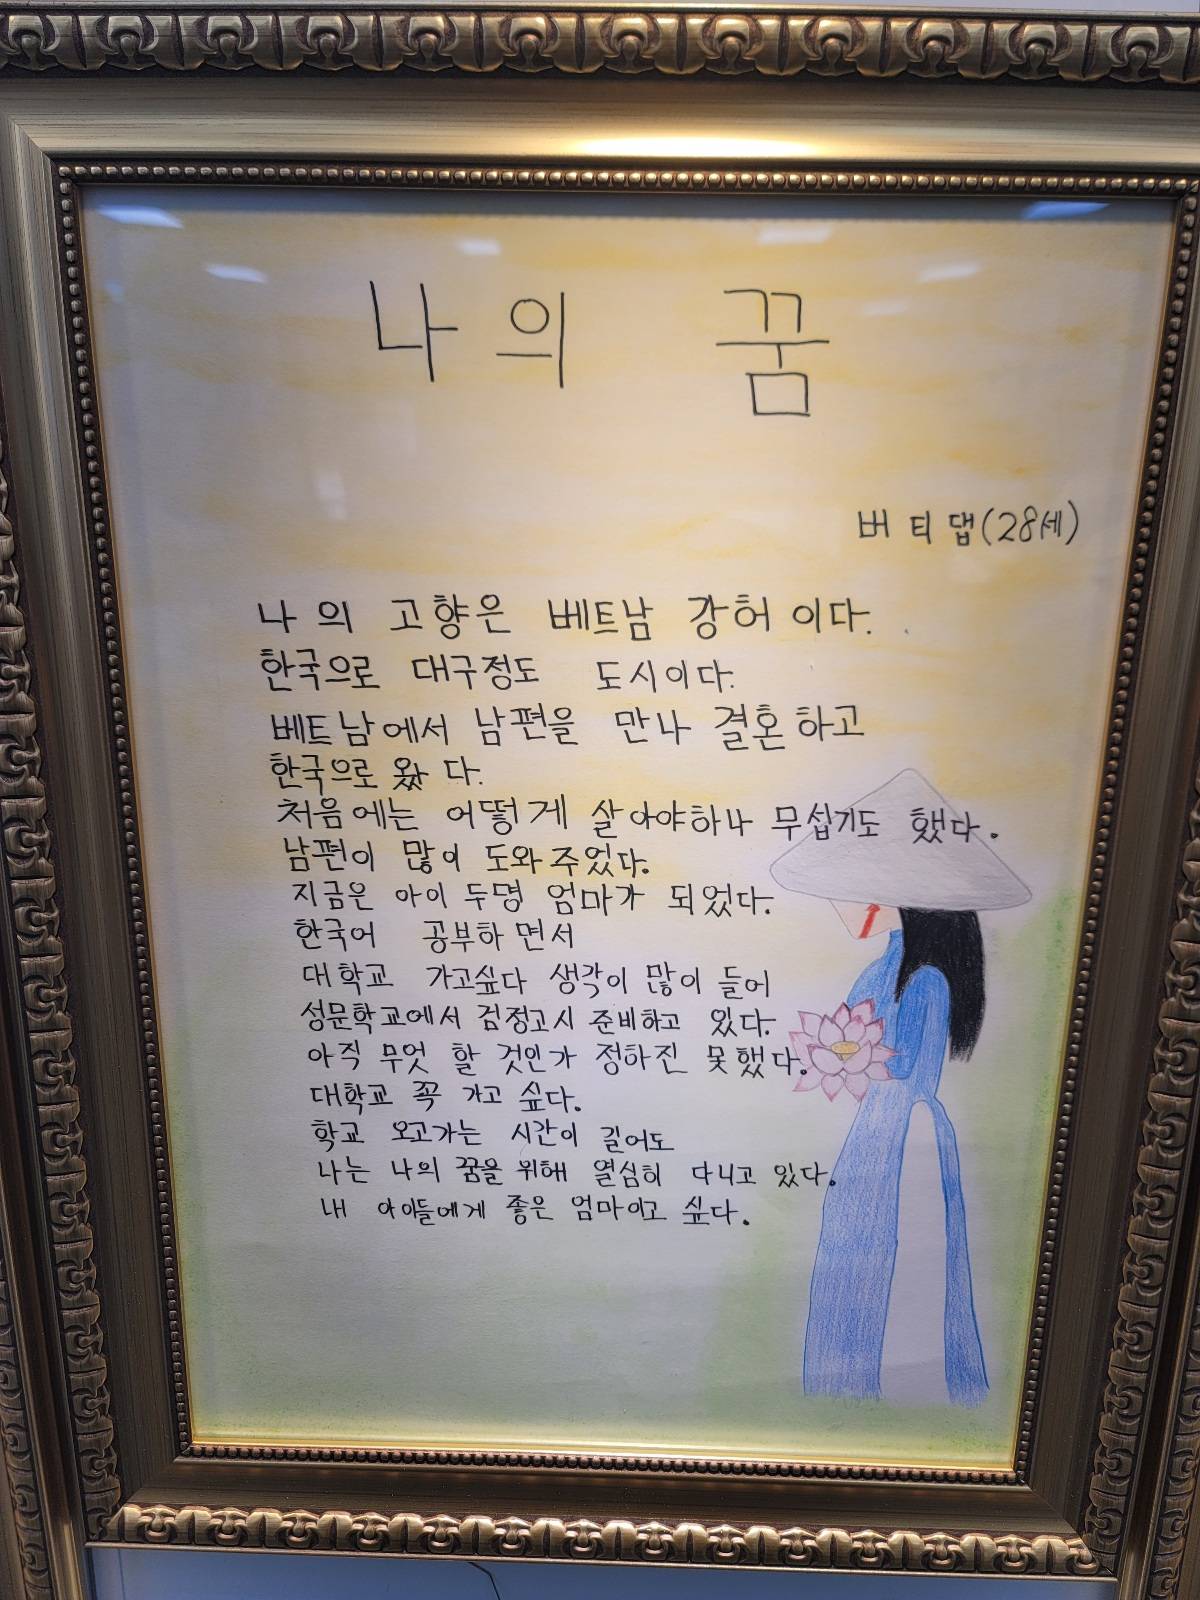 나의 꿈
버 티 댑 (28세)
나의 고향은 베트남 강허 이다.
한국으로 대구정도 도시이다.
베트남에서 남편을 만나 결혼하고
한국으로 왔다.
처음에는 어떻게 살아야하나 무섭기도 했다.
남편이 많이 도와주었다.
지금은 아이 두명 엄마가 되었다.
한국어 공부하면서
대학교 가고싶다 생각이 많이 들어
성문학교에서 검정고시 준비하고 있다.
아직 무엇 할 것인가 정하진 못했다.
대학교 꼭 가고 싶다.
학교 오고가는 시간이 길어도
나는 나의 꿈을 위해 열심히 다니고 있다.
내 아이들에게 좋은 엄마이고 싶다.